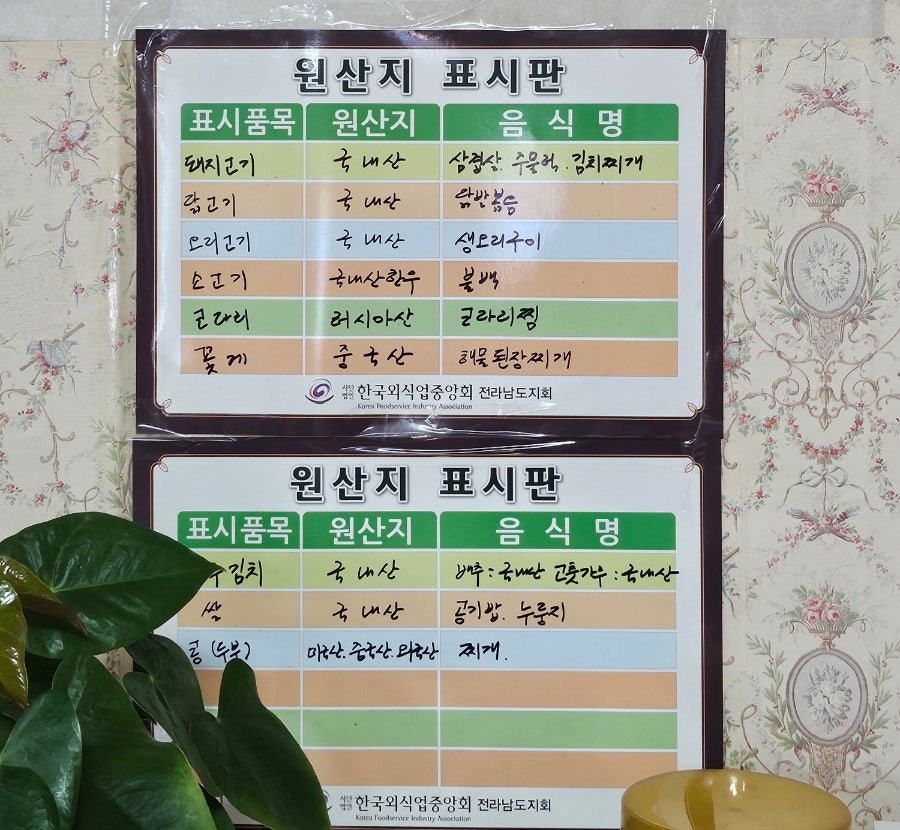 원산지 표시판
표시품목 원산지 음식명
돼지고기 국내산 삼겹살. 주물럭. 김치찌개
닭고기 국내산 닭반볶음
오리고기 국내산 생오리구이
소고기 국내산한우 불백
코다리 러시아산 코다리찜
꽃게 중국산 해물된장찌개
사단법인 한국외식업중앙회 전라남도지회
Korea Foodservice Industry Association
원산지 표시판
표시품목 원산지 음식명
김치 국내산 배추:국내산 고춧가루:국내산
쌀 국내산 공기밥. 누룽지
콩(두부) 미국산. 중국산. 외국산 찌개.
사단법인 한국외식업중앙회 전라남도지회
Korea Foodservice Industry Association